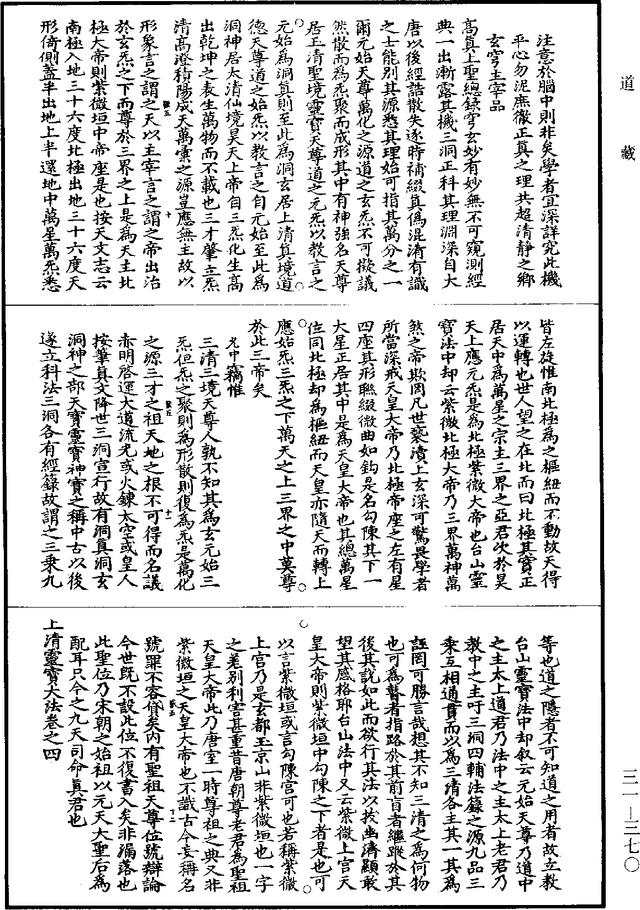 道藏
注意於腦中則非矣學者宜深詳究此機
平心勿泥庶徹正真之理共超清靜之鄉
玄穹主宰品
高真上聖總錄穹玄妙有妙無不可窺測經
典一出漸露其機三洞正科其理淵深自大
唐以後經誥散失逐時補綴真偽混淆有識
之士能別其源悉其理始可指其萬分之一
爾元始天尊萬化之源道之玄炁不可擬議
然散而為炁聚而成形其中有神強名天尊
居玉清聖境靈寶天尊道之元炁以教言之
元始為洞真則至此為洞玄居上清真境道
德天尊道之始炁以教言之自元始至此為
洞神居太清仙境昊天上帝自三炁化生高
出乾坤之表生萬物而不載也三才肇立炁
清高澄積陽成天萬彙之源豈應無主故以
形象言之謂之天以主宰言之謂之帝出治
於玄炁之下而尊於三界之上是為天主北
極大帝則紫微垣中帝座是也按天文志云
南極入地三十六度北極出地三十六度天
形倚側蓋半出地上半還地中萬星萬炁悉
皆左旋惟南北極為之樞紐而不動故天得
以運轉也世人望之在北而曰北極其實正
居天中為萬星之宗主三界之亞君次於昊
天上應元炁是為北極紫微大帝也台山靈
寶法中却云紫微北極大帝乃三界萬神萬
煞之帝欺罔凡世褻瀆上玄深可驚畏學者
所當深戒天皇大帝乃北極帝座之左有星
四座其形聯綴微曲如鈎是名勾陳其下一
大星正居其中是為天皇大帝也其總萬星
位同北極却為樞紐而天皇亦隨天而轉上
應始炁三炁之下萬天之上三界之中莫尊
於此三帝矣
允中竊惟
三清三境天尊人孰不知其為玄元始三
炁但炁之聚則為形散則復為炁是萬化
之源三才之祖天地之根不可得而名議
赤明啓運大道流光或火鍊太空或皇人
按筆真文降世三洞宣行故有洞真洞玄
洞神之部天寶靈寶神寶之稱中古以後
遂立科法三洞各有經籙故謂之三乘九
等也道之隱者不可知道之用者故立教
台山靈寶法中却叙云元始天尊乃道中
之主太上道君乃法中之主太上老君乃
教中之主吁三洞四輔法籙之源九品三
乘互相通貫而以為三清各主其一其為
誣罔可勝言哉想其不知三清之為何物
也可為瞽者指路於其前盲者繼蹤於其
後其說如此而欲行其法以拔幽濟顯敢
望其感格耶台山法中又云紫微上宮天
皇大帝則紫微垣中勾陳之下者是也可
以言紫微垣或言勾陳宮可也若稱紫微
上宮乃是玄都玉京山非紫微垣也一字
之差別利害甚重昔唐朝尊老君為聖祖
天皇大帝此乃唐室一時尊祖之典又非
紫微垣之天皇大帝也不識古今妄稱名
號罪不容貸矣內有聖祖天尊位號辯論
今世既不設此位不復書入矣非漏落也
此聖位乃宋朝之始祖以元天大聖后為
配耳只今之九天司命真君也
上清靈寶大法卷之四
三一—三七〇